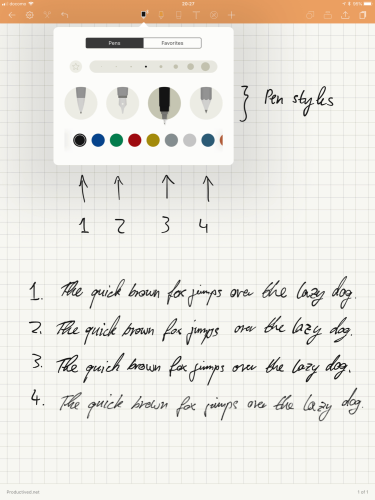 20:27
Pens Favorites
Pen styles
1 2 3 4
1. The quick brown fox jumps over the lazy dog.
2. The quick brown fox jumps over the lazy dog.
3. The quick brown fox jumps over the lazy dog.
4. The quick brown fox jumps over the lazy dog.
1 of 1